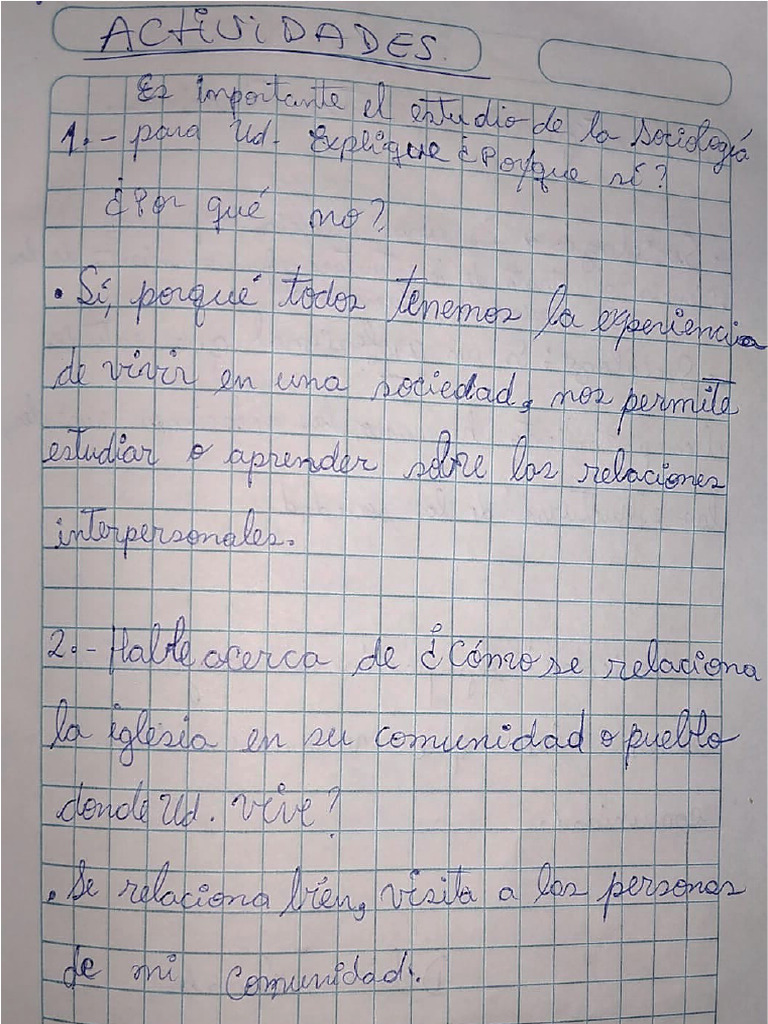 ACTIVIDADES.
Es importante el estudio de la sociología
1.- para Ud. Explique ¿Porque sí?
¿Por qué no?
• Sí, porqué todos tenemos la experiencia
de vivir en una sociedad, nos permite
estudiar o aprender sobre las relaciones
interpersonales.
2.- Hable acerca de ¿Cómo se relaciona
la iglesia en su comunidad o pueblo
donde Ud. vive?
. Se relaciona bien, visita a las personas
de mi comunidad.